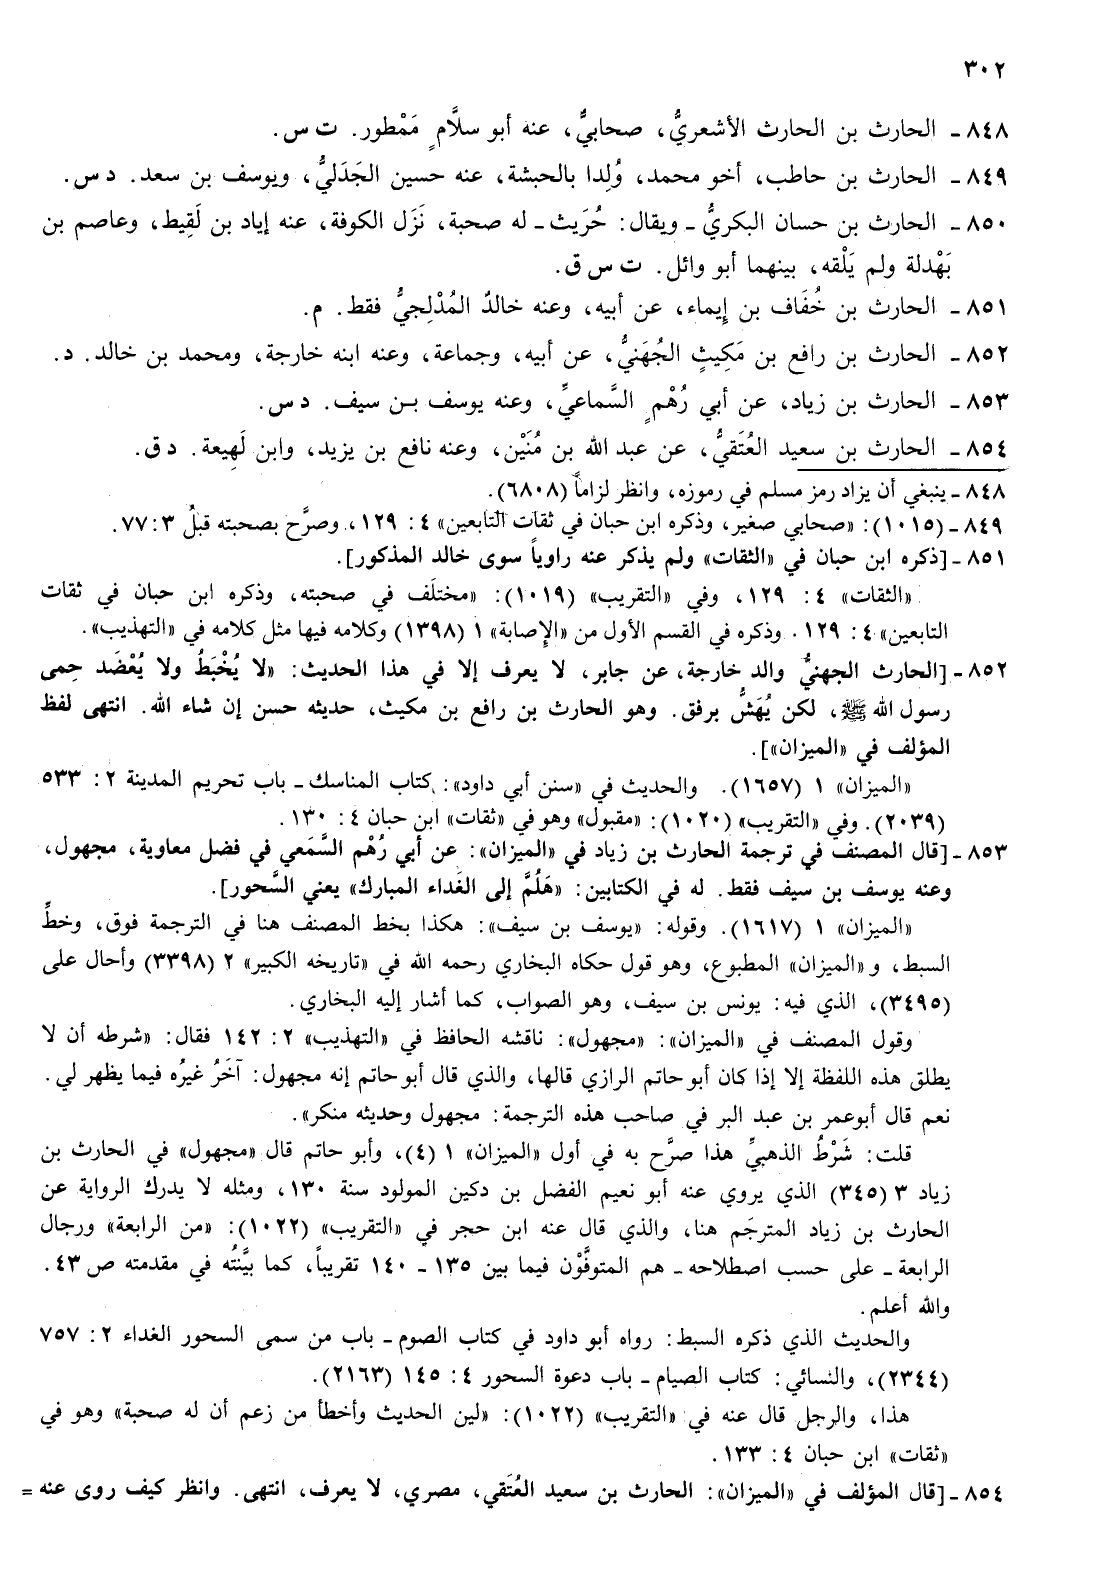 ٣٠٢
٨٤٨ - الحارث بن الحارث الأشعريُّ، صحابيٌّ، عنه أبو سلَّامٍ مَمْطور. ت س.
٨٤٩ - الحارث بن حاطب، أخو محمد، وُلِدا بالحبشة، عنه حسين الجَدَليُّ، ويوسف بن سعد. د س.
٨٥٠ - الحارث بن حسان البكريُّ - ويقال: حُرَيث - له صحبة، نَزَل الكوفة، عنه إياد بن لَقِيط، وعاصم بن
بَهْدلة ولم يَلْقه، بينهما أبو وائل. ت س ق.
٨٥١ - الحارث بن خُفَاف بن إيماء، عن أبيه، وعنه خالدٌ المُدْلِجيُّ فقط. م.
٨٥٢ - الحارث بن رافع بن مَكِيثٍ الجُهَنيُّ، عن أبيه، وجماعة، وعنه ابنه خارجة، ومحمد بن خالد. د.
٨٥٣ - الحارث بن زياد، عن أبي رُهْمٍ السَّماعيِّ، وعنه يوسف بـن سيف. د س.
٨٥٤ - الحارث بن سعيد العُتَقيُّ، عن عبد الله بن مُنَيْن، وعنه نافع بن يزيد، وابن لَهِيعة. د ق.
٨٤٨ - ينبغي أن يزاد رمز مسلم في رموزه، وانظر لزاماً (٦٨٠٨).
٨٤٩ - (١٠١٥): «صحابي صغير، وذكره ابن حبان في ثقات التابعين» ٤: ١٢٩، وصرَّح بصحبته قبلُ ٣: ٧٧.
٨٥١ - [ذكره ابن حبان في «الثقات» ولم يذكر عنه راوياً سوى خالد المذكور].
«الثقات» ٤: ١٢٩، وفي «التقريب» (١٠١٩): «مختلَف في صحبته، وذكره ابن حبان في ثقات
التابعين» ٤: ١٢٩. وذكره في القسم الأول من «الإصابة» ١ (١٣٩٨) وكلامه فيها مثل كلامه في «التهذيب».
٨٥٢ - [الحارث الجهنيُّ والد خارجة، عن جابر، لا يعرف إلا في هذا الحديث: «لا يُخْبَطُ ولا يُعْضَد حِمى
رسول الله ﷺ، لكن يُهَشُّ برفق. وهو الحارث بن رافع بن مكيث، حديثه حسن إن شاء الله. انتهى لفظ
المؤلف في «الميزان»].
«الميزان» ١ (١٦٥٧). والحديث في «سنن أبي داود»: كتاب المناسك - باب تحريم المدينة ٢: ٥٣٣
(٢٠٣٩). وفي «التقريب» (١٠٢٠): «مقبول» وهو في «ثقات» ابن حبان ٤: ١٣٠.
٨٥٣ - [قال المصنف في ترجمة الحارث بن زياد في «الميزان»: عن أبي رُهْم السَّمَعي في فضل معاوية، مجهول،
وعنه يوسف بن سيف فقط. له في الكتابين: «هَلُمَّ إلى الغَداء المبارك» يعني السَّحور].
«الميزان» ١ (١٦١٧). وقوله: «يوسف بن سيف»: هكذا بخط المصنف هنا في الترجمة فوق، وخطِّ
السبط، و «الميزان» المطبوع، وهو قول حكاه البخاري رحمه الله في «تاريخه الكبير» ٢ (٣٣٩٨) وأحال على
(٣٤٩٥)، الذي فيه: يونس بن سيف، وهو الصواب، كما أشار إليه البخاري.
وقول المصنف في «الميزان»: «مجهول»: ناقشه الحافظ في «التهذيب» ٢: ١٤٢ فقال: «شرطه أن لا
يطلق هذه اللفظة إلا إذا كان أبو حاتم الرازي قالها، والذي قال أبو حاتم إنه مجهول: آخَرُ غيرُه فيما يظهر لي.
نعم قال أبو عمر بن عبد البر في صاحب هذه الترجمة: مجهول وحديثه منكر».
قلت: شَرْطُ الذهبيِّ هذا صرَّح به في أول «الميزان» ١ (٤)، وأبو حاتم قال «مجهول» في الحارث بن
زياد ٣ (٣٤٥) الذي يروي عنه أبو نعيم الفضل بن دكين المولود سنة ١٣٠، ومثله لا يدرك الرواية عن
الحارث بن زياد المترجَم هنا، والذي قال عنه ابن حجر في «التقريب» (١٠٢٢): «من الرابعة» ورجال
الرابعة - على حسب اصطلاحه - هم المتوفَّوْن فيما بين ١٣٥ - ١٤٠ تقريباً، كما بيَّنتُه في مقدمته ص ٤٣.
والله أعلم.
والحديث الذي ذكره السبط: رواه أبو داود في كتاب الصوم - باب من سمى السحور الغداء ٢: ٧٥٧
(٢٣٤٤)، والنسائي: كتاب الصيام - باب دعوة السحور ٤: ١٤٥ (٢١٦٣).
هذا، والرجل قال عنه في «التقريب» (١٠٢٢): «لين الحديث وأخطأ من زعم أن له صحبة» وهو في
«ثقات» ابن حبان ٤: ١٣٣.
٨٥٤ - [قال المؤلف في «الميزان»: الحارث بن سعيد العُتَقي، مصري، لا يعرف، انتهى. وانظر كيف روى عنه =